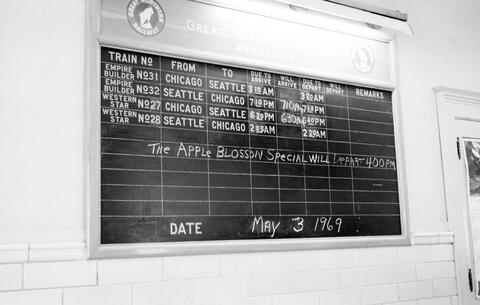 GREAT NORTHERN RAILWAY
GREAT NO
WENATCHEE
TRAIN No FROM TO DUE TO ARRIVE WILL ARRIVE DUE TO DEPART WILL DEPART REMARKS
EMPIRE BUILDER No31 CHICAGO SEATTLE 310AM 320AM
EMPIRE BUILDER No32 SEATTLE CHICAGO 710PM 710PM 715PM
WESTERN STAR No27 CHICAGO SEATTLE
WESTERN STAR No28 SEATTLE CHICAGO
THE APPLE BLOSSON SPECIAL WILL DEPART 400PM
DATE MAY 3 1969